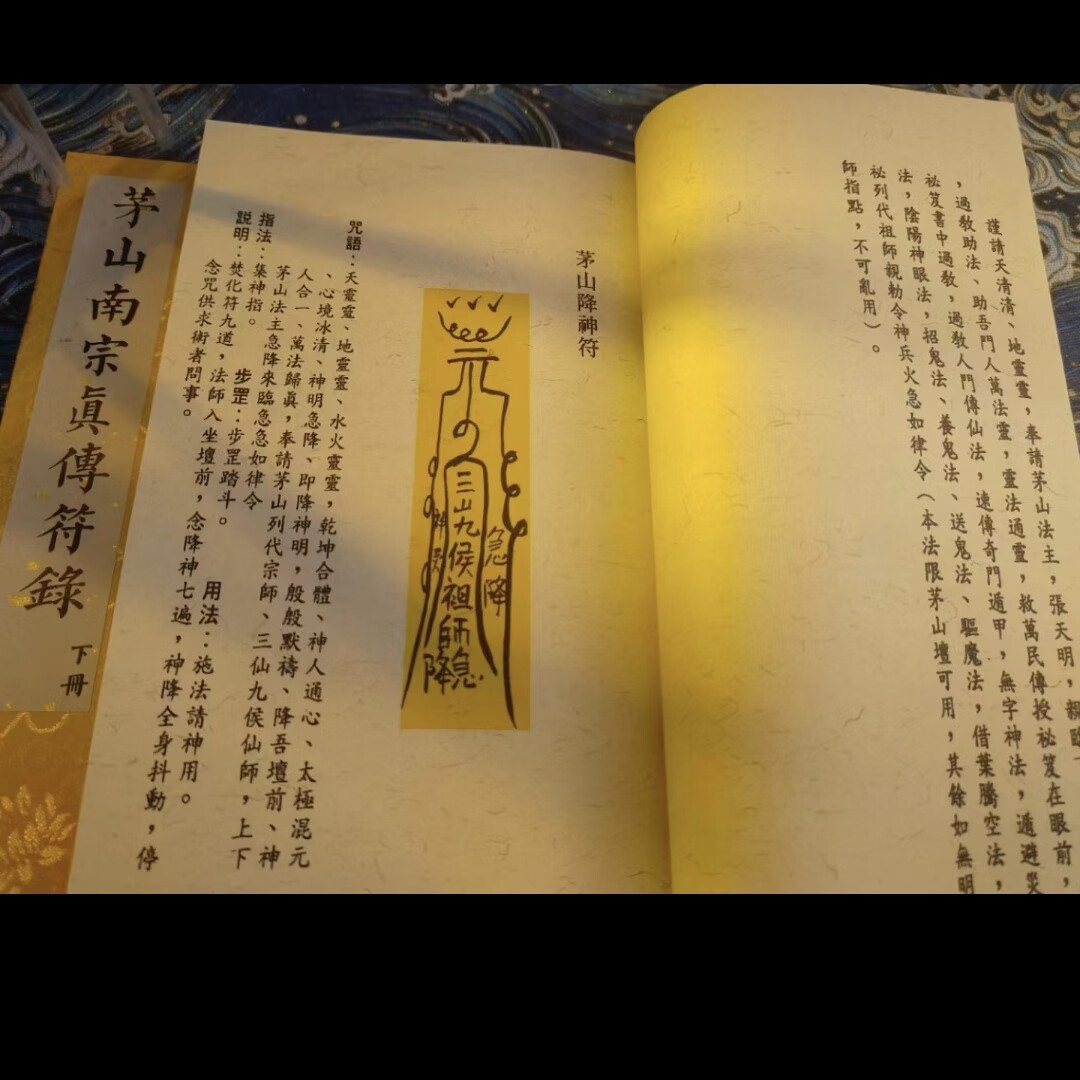 謹請天清清、地靈靈，奉請茅山法主，張天明，親臨
，過教助法、助吾門人萬法靈，靈法通靈，救萬民傳授祕笈在眼前，
祕笈書中過教，過教人門傳仙法，速傳奇門遁甲，無字神法，遁避災
法，陰陽神眼法，招鬼法、養鬼法、送鬼法、驅魔法，借葉騰空法，
祕列代祖師親勅令神兵火急如律令（本法限茅山壇可用，其餘如無明
師指點，不可亂用）。
茅山降神符
元
急降
三山九侯祖師急降
咒語：天靈靈、地靈靈、水火靈靈，乾坤合體、神人通心、太極混元
、心境冰清、神明急降、即降神明，殷殷默禱、降吾壇前、神
人合一、萬法歸眞，奉請茅山列代宗師、三仙九侯仙師，上下
茅山法主急降來臨急急如律令
指法：集神指。　步罡：步罡踏斗。　用法：施法請神用。
說明：焚化符九道，法師入坐壇前，念降神七遍，神降全身抖動，停
念咒供求術者問事。
茅山南宗眞傳符錄
下冊